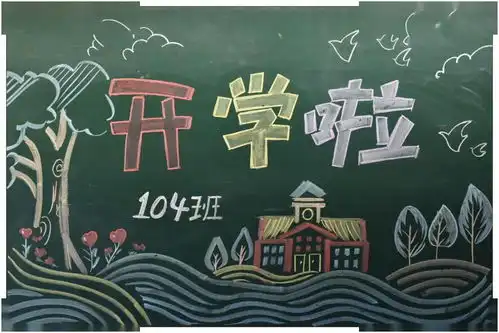 开学啦
104班